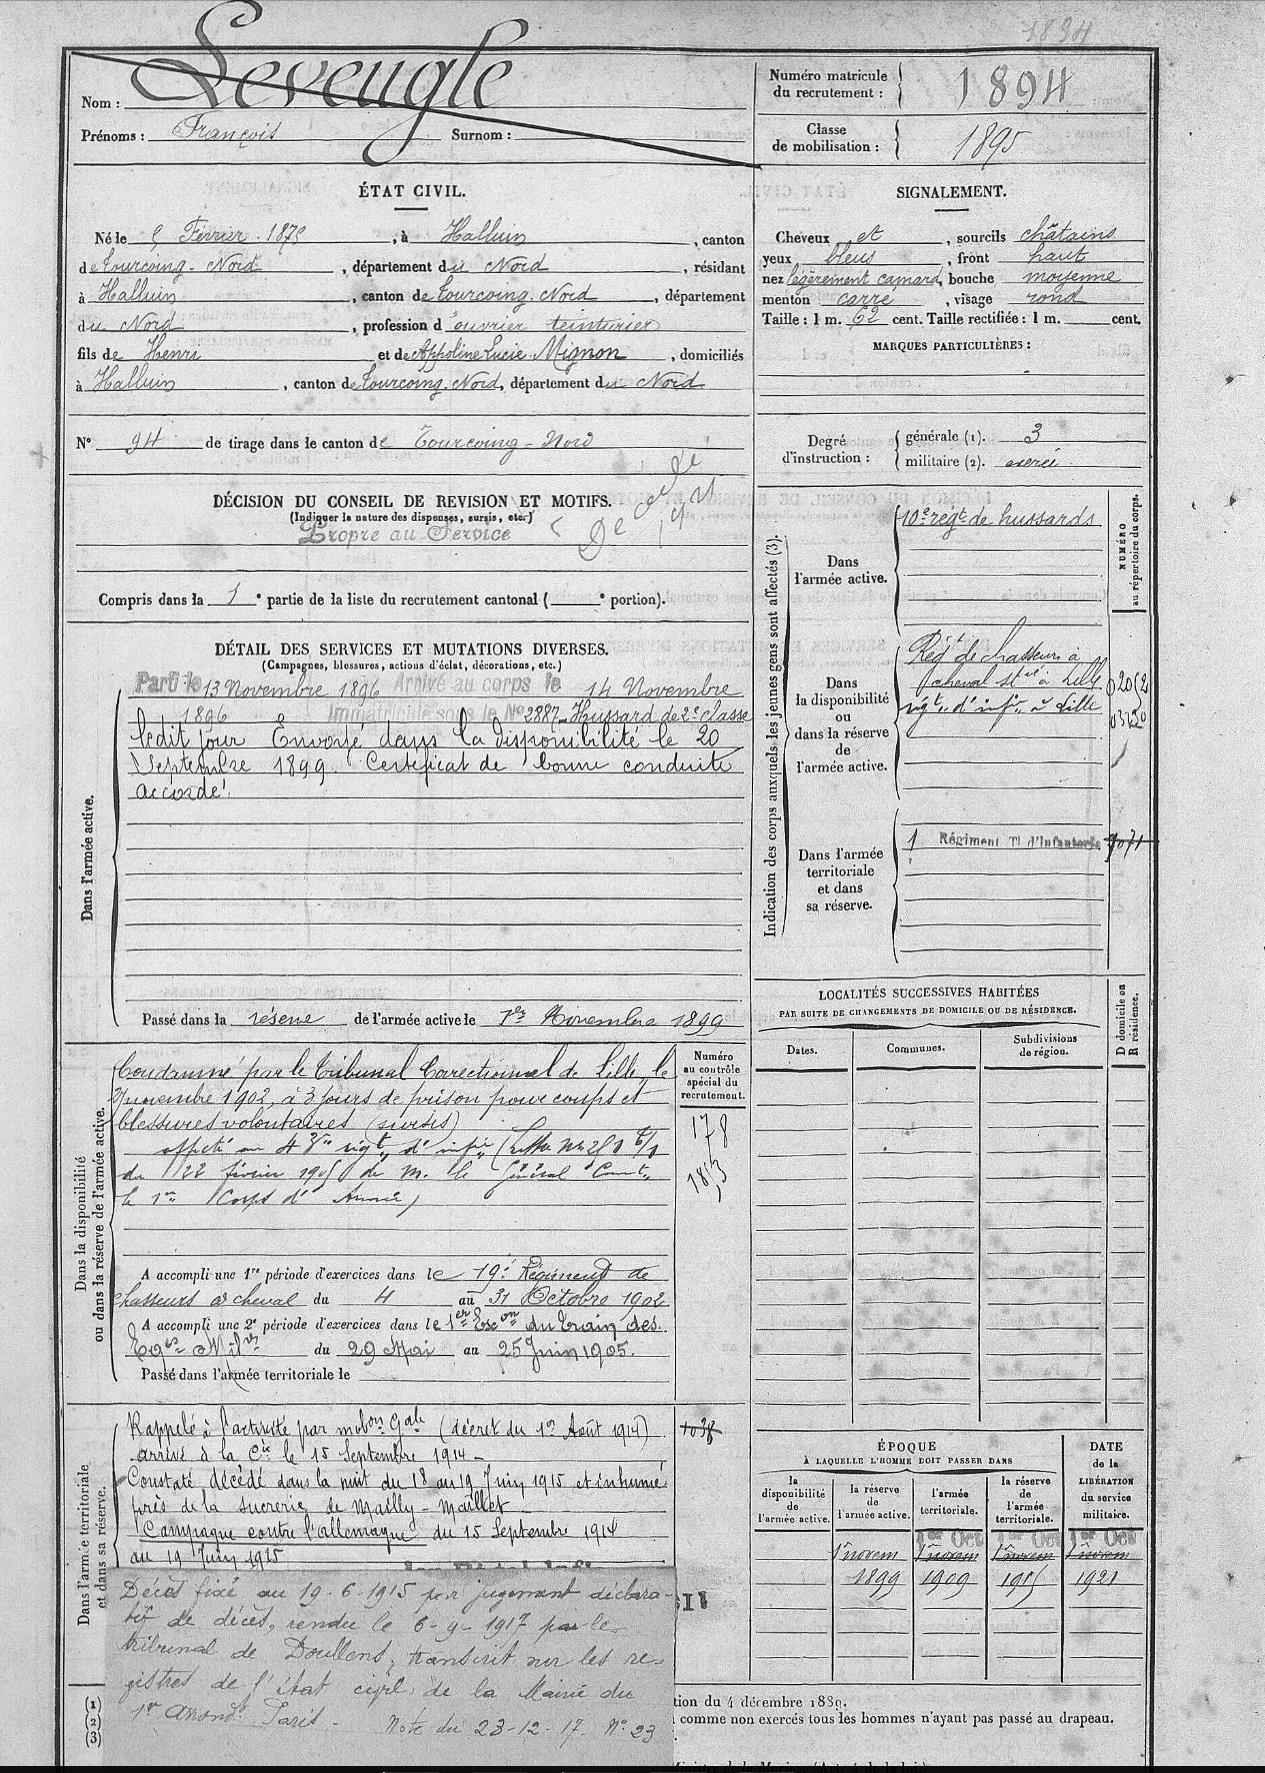 1894
Nom : Leveugle
Prénoms : François Surnom :
Numéro matricule du recrutement : 1894
Classe de mobilisation : 1895
ÉTAT CIVIL.
Né le 5 Février 1875, à Halluin, canton
de Tourcoing-Nord, département du Nord, résidant
à Halluin, canton de Tourcoing-Nord, département
du Nord, profession d'ouvrier teinturier
fils de Henri et de Appoline Lucie Mignon, domiciliés
à Halluin, canton de Tourcoing-Nord, département du Nord
N° 94 de tirage dans le canton de Tourcoing-Nord
SIGNALEMENT.
Cheveux et, sourcils châtains
yeux bleus, front haut
nez légèrement camard, bouche moyenne
menton carré, visage rond
Taille : 1 m. 62 cent. Taille rectifiée : 1 m. cent.
MARQUES PARTICULIÈRES :
Degré d'instruction :
générale (1). 3
militaire (2). exercé
DÉCISION DU CONSEIL DE REVISION ET MOTIFS.
(Indiquer la nature des dispenses, sursis, etc.)
Propre au Service
Compris dans la 1e partie de la liste du recrutement cantonal ( e portion).
DÉTAIL DES SERVICES ET MUTATIONS DIVERSES.
(Campagnes, blessures, actions d'éclat, décorations, etc.)
Dans l'armée active.
Parti le 13 Novembre 1896 Arrivé au corps le 14 Novembre
1896 Immatriculé sous le No 2887 Hussard de 2e classe
ledit jour Envoyé dans la disponibilité le 20
Septembre 1899. Certificat de bonne conduite
accordé.
Passé dans la réserve de l'armée active le 1er Novembre 1899
Indication des corps auxquels les jeunes gens sont affectés (3).
NUMÉRO au répertoire du corps.
Dans l'armée active.
10e régt de hussards
Dans la disponibilité ou dans la réserve de l'armée active.
Régt de chasseurs à
cheval stné à Lille
régt d'infie à Lille
Dans l'armée territoriale et dans sa réserve.
1 Régiment Tl d'Infanterie
LOCALITÉS SUCCESSIVES HABITÉES
PAR SUITE DE CHANGEMENTS DE DOMICILE OU DE RÉSIDENCE.
Dates. Communes. Subdivisions de région. D domicile ou R résidence.
Dans la disponibilité ou dans la réserve de l'armée active.
Condamné par le Tribunal Correctionnel de Lille, le
novembre 1902, à 3 jours de prison pour coups et
blessures volontaires (sursis)
affecté au régt d'infie
du 22 février 1905 de M. le Général Comt
le 1er Corps d'Armée)
Numéro au contrôle spécial du recrutement.
178
A accompli une 1re période d'exercices dans le 19e Régiment de
chasseurs à cheval du 4 au 31 Octobre 1902
A accompli une 2e période d'exercices dans le 1er Escon du train des
Eqges Mil du 29 Mai au 25 Juin 1905.
Passé dans l'armée territoriale le
Dans l'armée territoriale et dans sa réserve.
Rappelé à l'activité par mobon Gale (décret du 1er Août 1914)
arrivé à la Cie le 15 Septembre 1914 -
Constaté décédé dans la nuit du 18 au 19 Juin 1915 et inhumé
près de la sucrerie de Mailly-Maillet
Campagne contre l'allemagne du 15 Septembre 1914
au 19 Juin 1915
Décès fixé au 19-6-1915 par jugement déclara-
tif de décès, rendu le 6-9-1917 par le
tribunal de Doullens, transcrit sur les re-
gistres de l'état civil de la Mairie du
1er Arrondt Paris - Note du 23-12-17. No 23
ÉPOQUE
À LAQUELLE L'HOMME DOIT PASSER DANS
la disponibilité de l'armée active.
la réserve de l'armée active.
l'armée territoriale.
la réserve de l'armée territoriale.
DATE de la LIBÉRATION du service militaire.
1er Oct 1er Oct 1er Oct
1er novem 1er novem 1er novem 1er novem
1899 1909 1915 1921
(1)
(2)
(3)
tion du 4 décembre 1889.
comme non exercés tous les hommes n'ayant pas passé au drapeau.